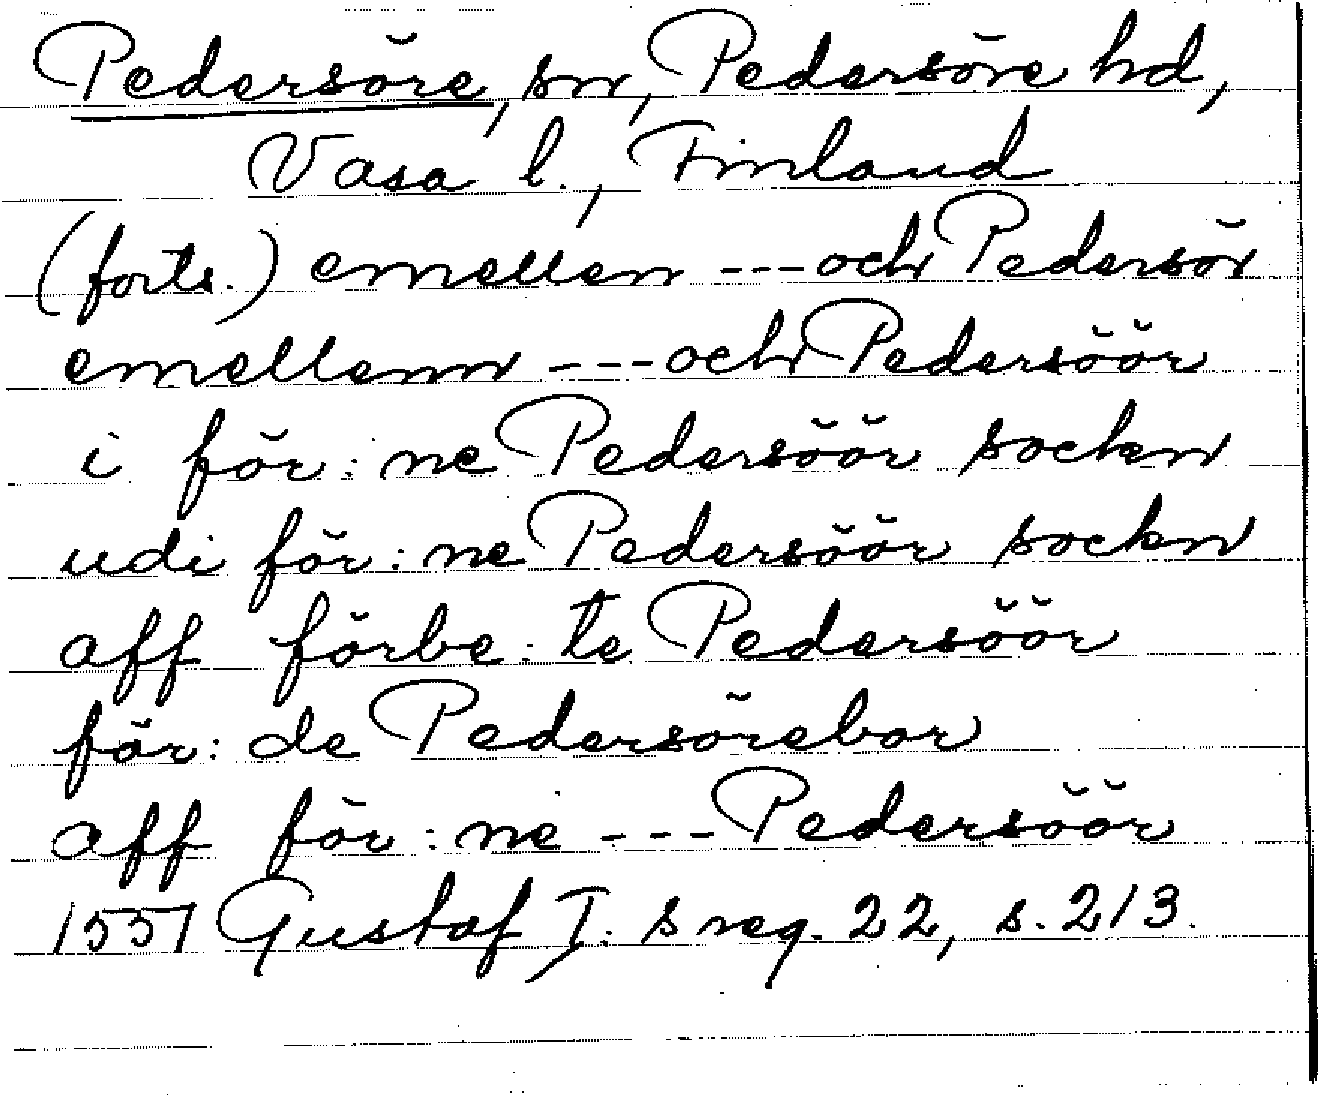 Pedersöre, sn, Pedersöre hd,
Vasa l., Finland
(forts.) emellen --- och Pedersör
emellenn --- och Pedersöör
i för: ne Pedersöör sockn
udi för: ne Pedersöör sockn
aff förbe: te Pedersöör
för: de Pedersörebor
aff för: ne --- Pedersöör
1551 Gustaf I:s reg. 22, s. 213.